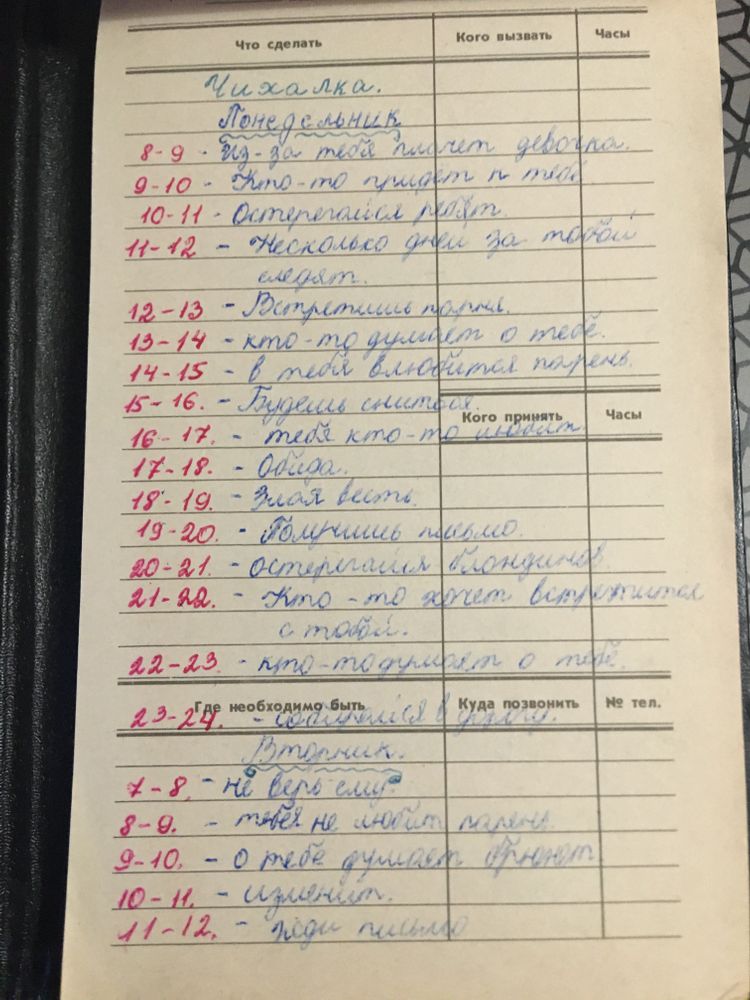 Что сделать Кого вызвать Часы
Чихалка.
Понедельник
8-9 - Из-за тебя плачет девочка.
9-10 - Кто-то придет к тебе
10-11 - Остерегайся ребят.
11-12 - Несколько дней за тобой
следят.
12-13 - Встретишь парня.
13-14 - кто-то думает о тебе.
14-15 - в тебя влюбится парень.
15-16. - Будешь снится.
Кого принять Часы
16-17. - тебя кто-то любит.
17-18. - Обида.
18-19. - Злая весть.
19-20. - Получишь письмо.
20-21. - остерегайся блондинов.
21-22. - Кто-то хочет встретится
с тобой.
22-23. - кто-то думает о тебе.
Где необходимо быть Куда позвонить № тел.
23-24. - в
Вторник.
7-8. - не верь ему.
8-9. - тебя не любит парень.
9-10. - о тебе думает брюнет
10-11. - изменит.
11-12. - жди письмо